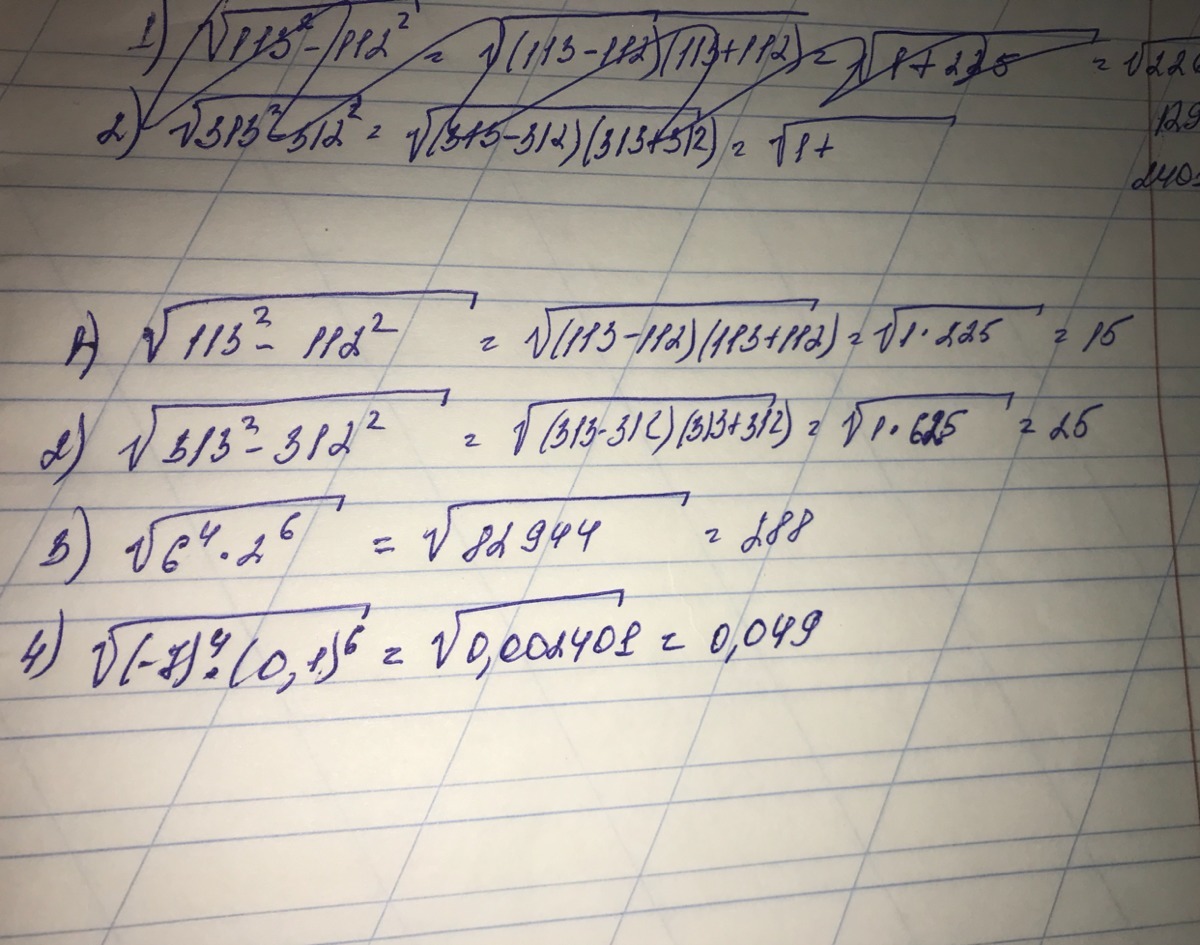 1) √113² - 112² = √(113-112)(113+112) = √1+225 = √226
2) √313² - 312² = √(313-312)(313+312) = √1+
129
240
1) √113² - 112² = √(113-112)(113+112) = √1·225 = 15
2) √313² - 312² = √(313-312)(313+312) = √1·625 = 25
3) √6⁴·2⁶ = √82944 = 288
4) √(-7)⁴·(0,1)⁶ = √0,002401 = 0,049